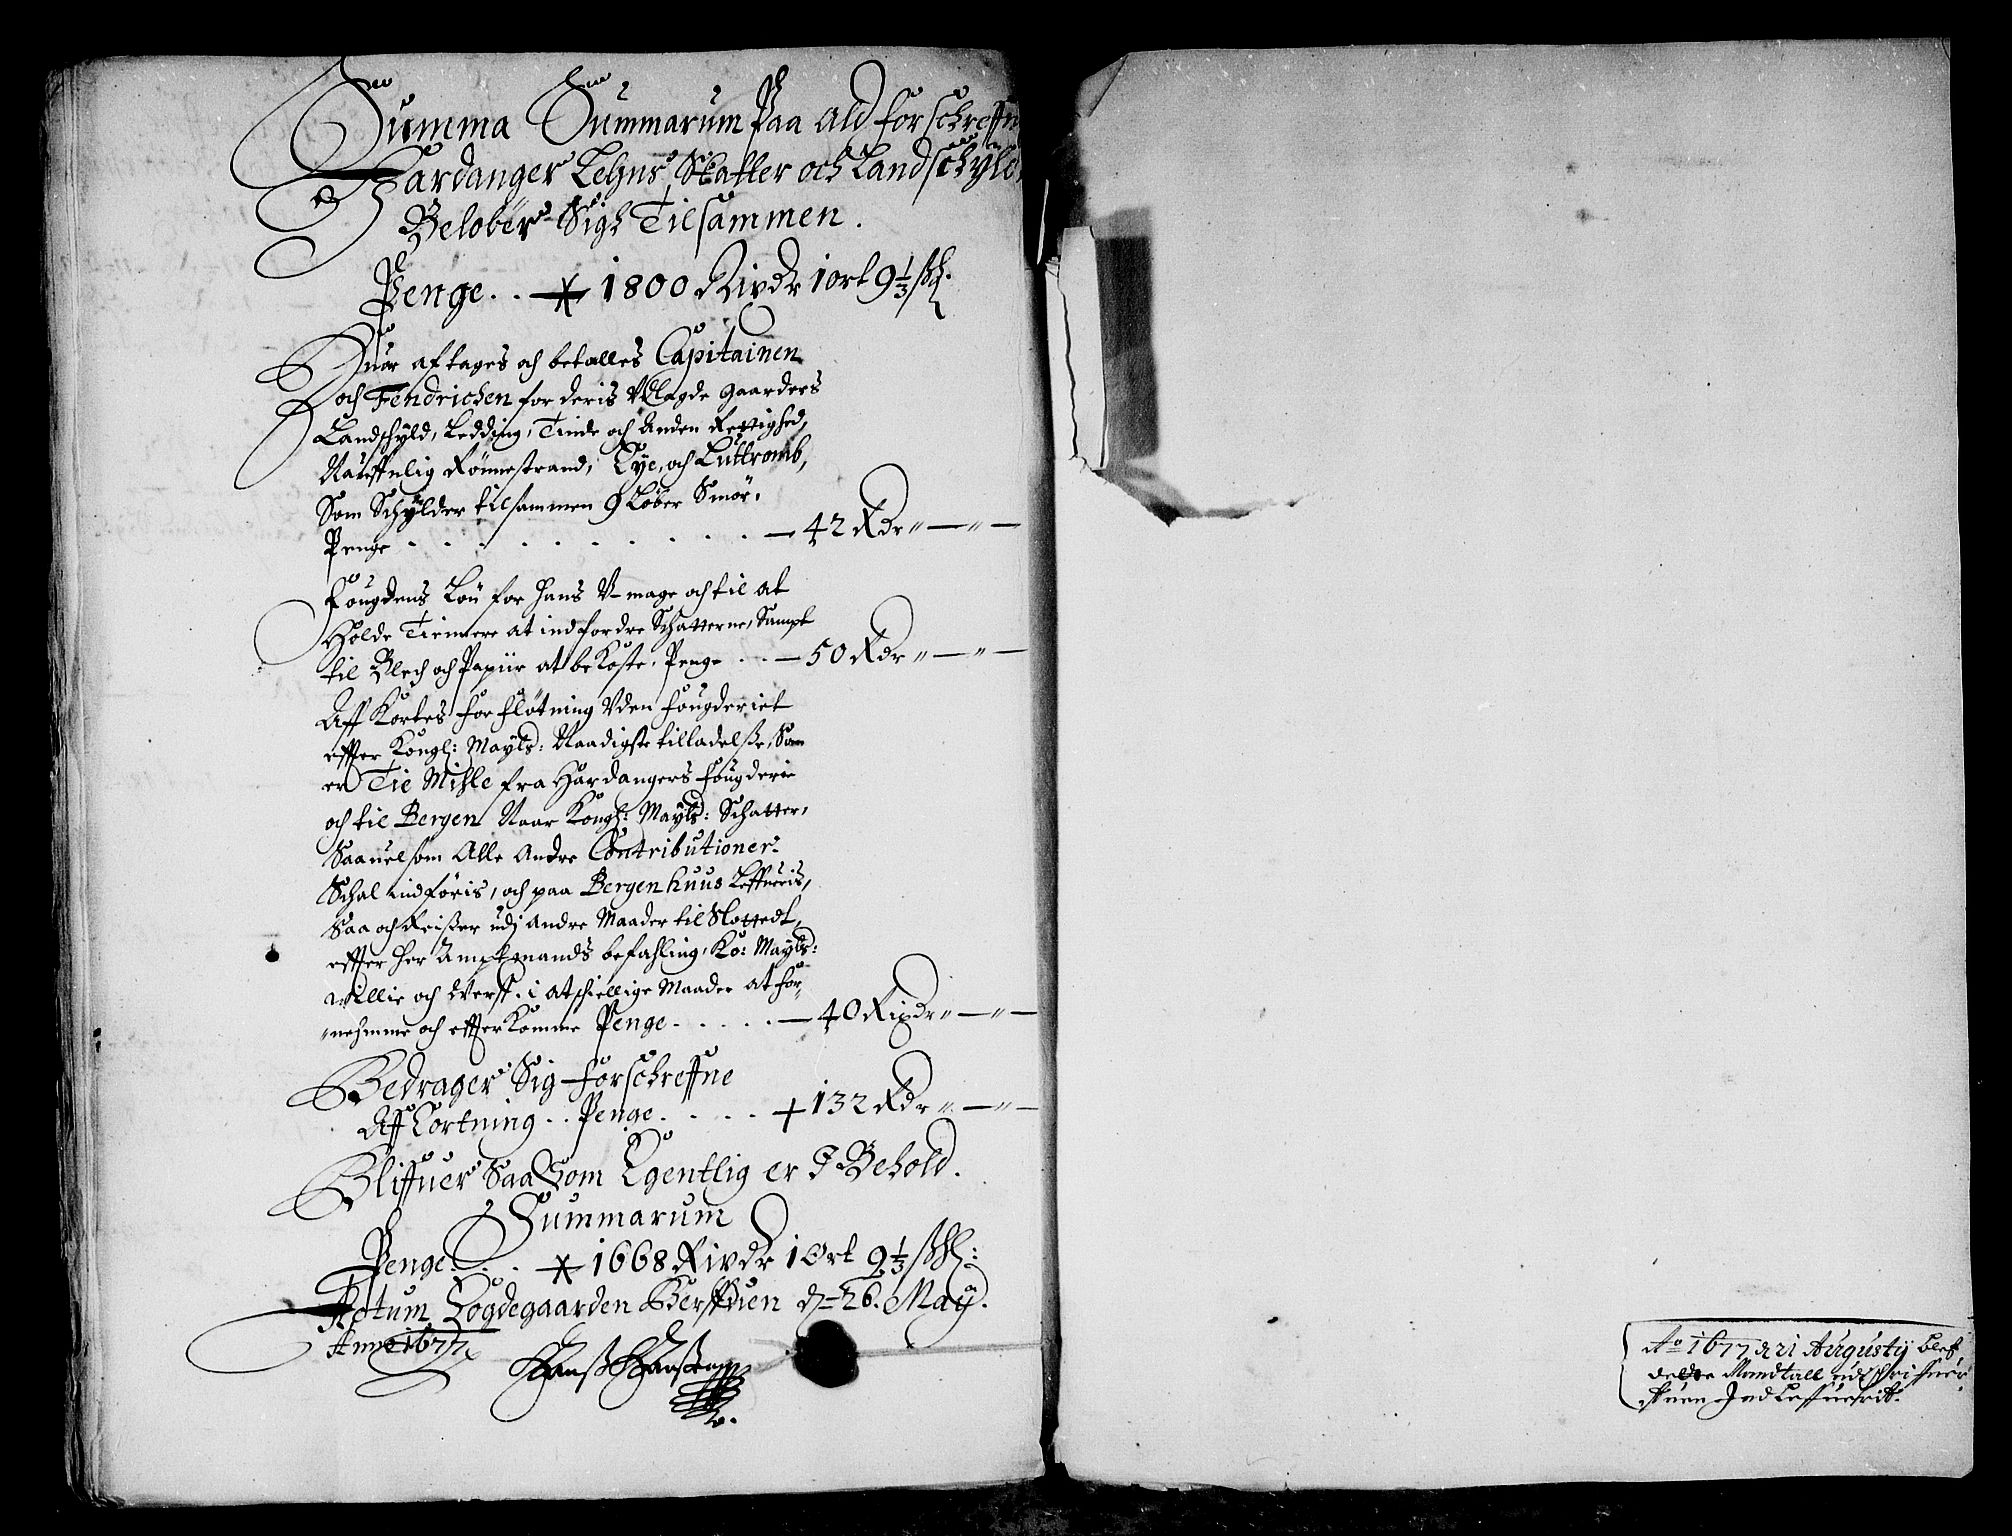 Summa Summarum Paa Ald forschreffne
Hardanger Lehns Skatter och Landschyld,
Beløber Sigh Tilsammen.
Penge . . 1800 Rixdr 1 ort 9 1/3 sk.
Huor aftages och betalles Capitainen
och Fendrichen for deris Vdlagde Gaarders
Landschyld, Ledding, Tinde och Anden Rettighed,
Naueffnlig Rönnestrand, Eye, och Luttromb,
Som Schylder tilsammen 9 Løber Smør.
Penge . . . . . . . . . — 42 Rdr „ — „ —
Fougdens Løn for Hans V-mage och til at
Holde Tienere at indfordre Schatterne, Sampt
til Blech och Papiir at bekoste. Penge . . — 50 Rdr „ — „ —
Aff Kortes for fløtning Vden fougderiet
effter Kongl: Mayts: Naadigste tilladelsse, Som
er Tie Miile fra Hardangers fougderie
och til Bergen Naar Kongl: Mayts: Schatter,
Saauelsom Alle Andre Contributioner
Schal indføris, och paa Bergenhuus Leffueris,
Saa och Reisser udj andre Maader til Slottedt,
effter Her Amptmands befahling, Ko: Mayts:
Willie och Verff. i atschiellige Maader at for„
„nehmme och effterkomme Penge . . . . . — 40 Rixdr „ — „ —
Bedrager Sig forschreffne
Aff Cortning . . Penge . . . . + 132 Rdr „ — „ —
Bliffuer Saa Som Egentlig er I Behold.
Summarum
Penge . . . 1668 Rixdr 1 Ort 9 1/3 sk:
Actum Logdegaarden d 26. May.
Anno 1677
Ao 1677 d 21 Augustij blef
dette Mandtall udschriffuer
stuen Indleffuerit.